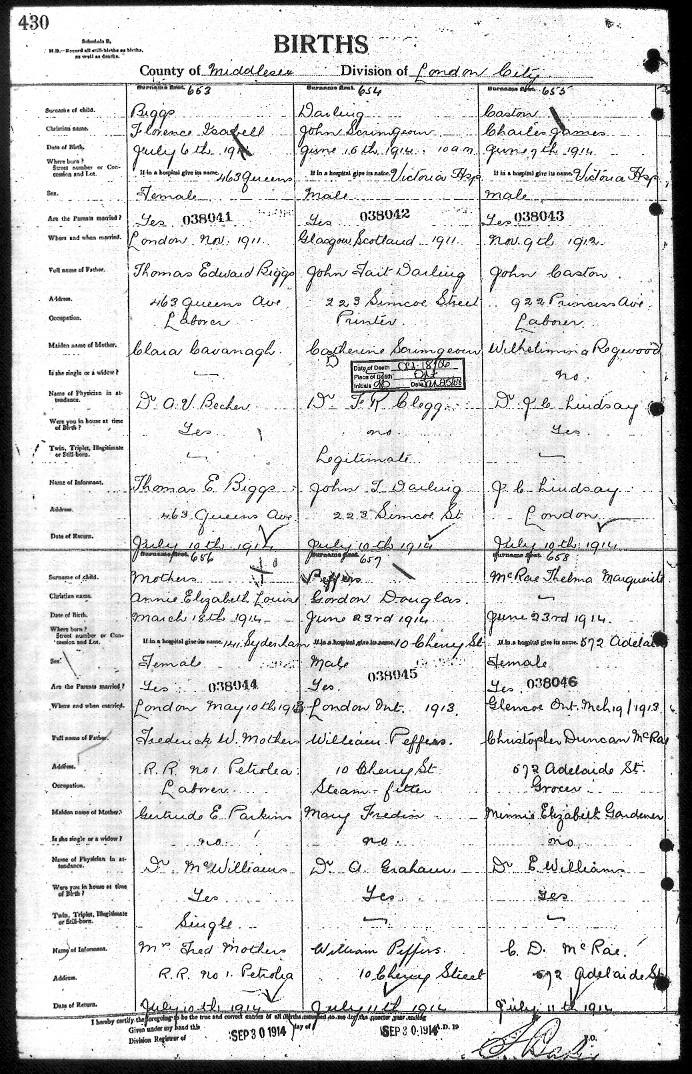 430
Schedule B.
N.B.—Record all still-births as births, as well as deaths.
BIRTHS
County of Middlesex Division of London City
Surname first. 653 Surname first. 654 Surname first. 655
Surname of child. Biggs Darling Caston
Christian name. Florence Isabell John Scrimgeour Charles James
Date of Birth. July 6th 1914 June 15th 1914 10 a m June 9th 1914
Where born? Street number or Concession and Lot. If in a hospital give its name. 463 Queens If in a hospital give its name. Victoria Hsp If in a hospital give its name. Victoria Hsp
Sex. Female Male Male
Are the Parents married? Yes 038041 Yes 038042 Yes 038043
Where and when married. London Nov. 1911 Glasgow Scotland 1911 Nov. 9th 1912
Full name of Father. Thomas Edward Biggs John Tait Darling John Caston
Address. 463 Queens Ave 223 Simcoe Street 922 Princess Ave.
Occupation. Laborer Printer Laborer
Maiden name of Mother. Clara Cavanagh Catherine Scrimgeour Wilhelimina Rogewood
Is she single or a widow? — no.
Date of Death
Place of Death Ont
Initials Date
Name of Physician in attendance. Dr A. V. Becher Dr F. R. Clegg Dr J C Lindsay
Were you in house at time of Birth? Yes no Yes
Twin, Triplet, Illegitimate or Still-born. — Legitimate —
Name of Informant. Thomas E. Biggs John T. Darling J. C. Lindsay
Address. 463 Queens Ave 223 Simcoe St London
Date of Return. July 10th 1914 July 10th 1914 July 10th 1914
Surname first. 656 Surname first. 657 Surname first. 658
Surname of child. Mothers Peffers McRae Thelma Marguerite
Christian name. Annie Elizabeth Louise Gordon Douglas
Date of Birth. March 18th 1914 June 23rd 1914 June 23rd 1914.
Where born? Street number or Concession and Lot. If in a hospital give its name. 141 Sydenham If in a hospital give its name. 10 Cherry St If in a hospital give its name. 572 Adelaide
Sex. Female Male Female
Are the Parents married? Yes 038044 Yes. 038045 Yes 038046
Where and when married. London May 10th 1913 London Ont. 1913. Glencoe Ont. Mch 19/1913
Full name of Father. Frederick W. Mothers William Peffers. Christopher Duncan McRae
Address. R.R. No 1 Petrolea 10 Cherry St 572 Adelaide St.
Occupation. Laborer Steam-fitter Grocer
Maiden name of Mother. Gertrude E. Parkins Mary Fredin Minnie Elizabeth Gardener
Is she single or a widow? no. no. no
Name of Physician in attendance. Dr McWilliams Dr A. Graham Dr E Williams
Were you in house at time of Birth? Yes Yes Yes
Twin, Triplet, Illegitimate or Still-born. Single — —
Name of Informant. Mrs Fred Mothers William Peffers. C. D. McRae.
Address. R.R. No 1. Petrolea 10 Cherry Street 572 Adelaide St
Date of Return. July 10th 1914 July 11th 1914 July 11th 1914
I hereby certify the foregoing to be the true and correct entries of all Births
Given under my hand this SEP 30 1914 day of SEP 30 1914 A.D. 19
Division Registrar of